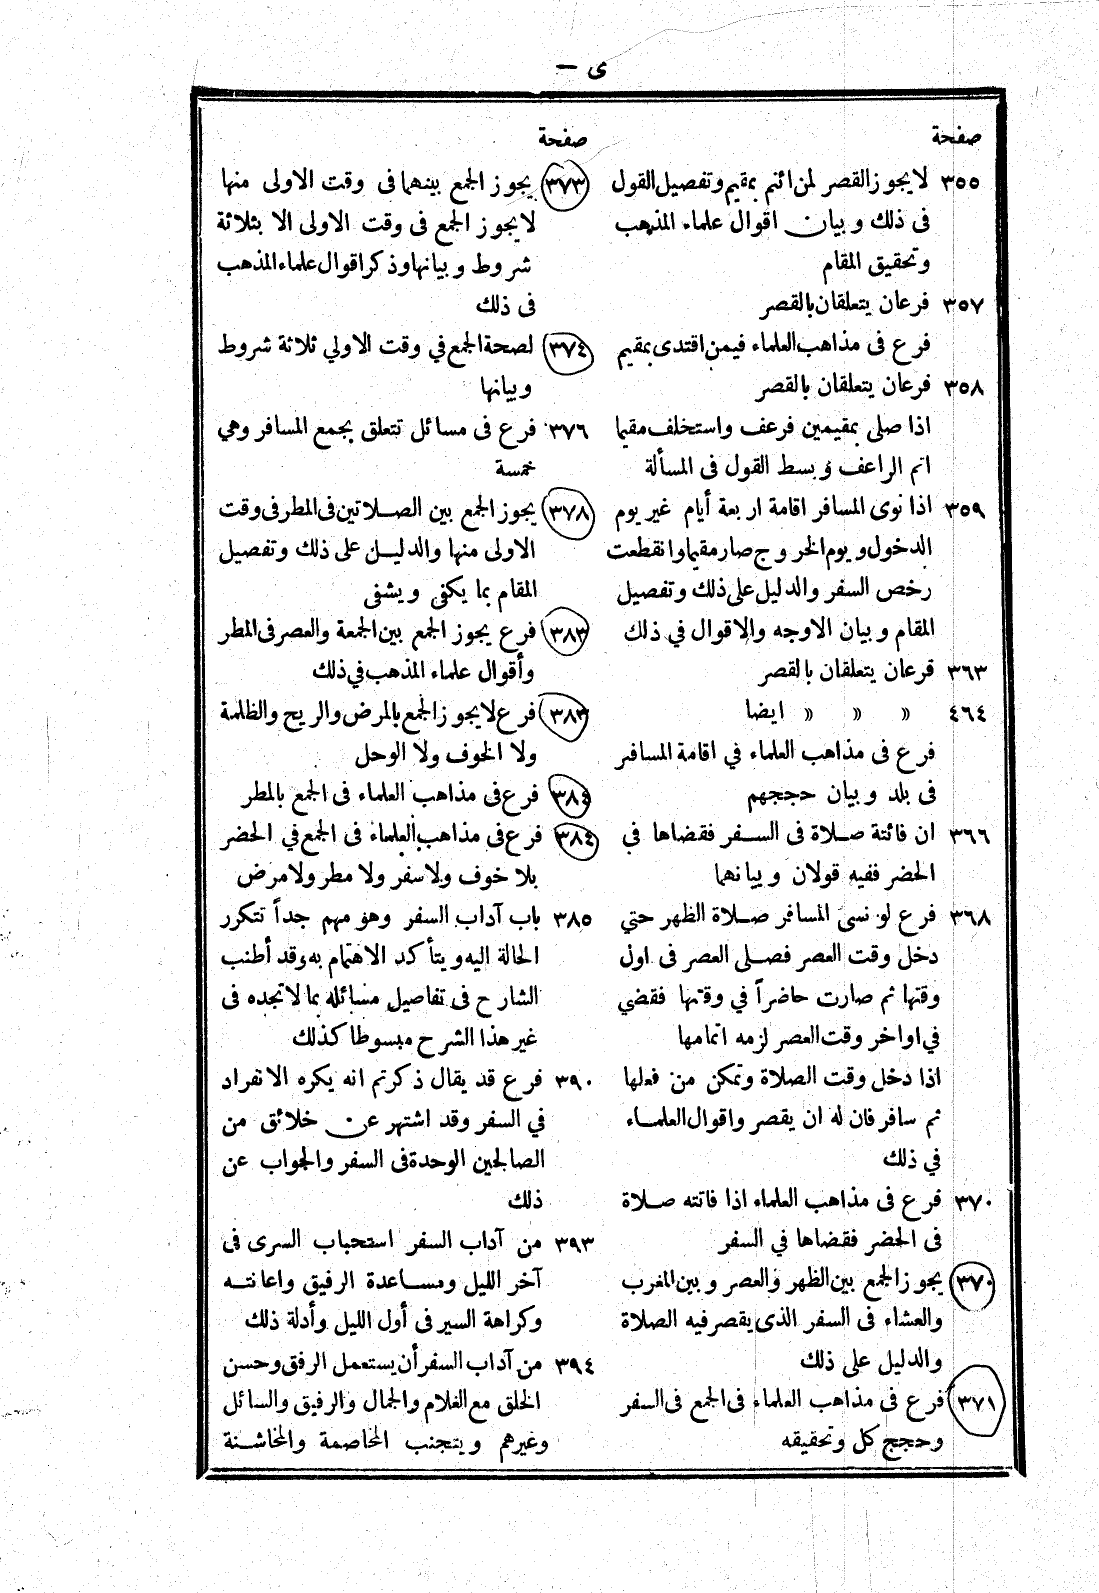 ى —
صفحة
٣٥٥ لايجوز القصر لمن ائتم بمقيم وتفصيل القول
فى ذلك وبيان اقوال علماء المذهب
وتحقيق المقام
٣٥٧ فرعان يتعلقان بالقصر
فرع فى مذاهب العلماء فيمن اقتدى بمقيم
٣٥٨ فرعان يتعلقان بالقصر
اذا صلى بمقيمين فرعف واستخلف مقيما
اتم الراعف وبسط القول فى المسألة
٣٥٩ اذا نوى المسافر اقامة اربعة أيام غير يوم
الدخول ويوم الخروج صار مقيما وانقطعت
رخص السفر والدليل على ذلك وتفصيل
المقام وبيان الاوجه والاقوال في ذلك
٣٦٣ فرعان يتعلقان بالقصر
٤٦٤ » » » ايضا
فرع فى مذاهب العلماء في اقامة المسافر
فى بلد وبيان حججهم
٣٦٦ ان فائتة صلاة فى السفر فقضاها في
الحضر ففيه قولان وبيانهما
٣٦٨ فرع لو نسى المسافر صلاة الظهر حتي
دخل وقت العصر فصلى العصر فى اول
وقتها ثم صارت حاضراً في وقتها فقضي
في اواخر وقت العصر لزمه اتمامها
اذا دخل وقت الصلاة وتمكن من فعلها
ثم سافر فان له ان يقصر واقوال العلماء
في ذلك
٣٧٠ فرع فى مذاهب العلماء اذا فاتته صلاة
فى الحضر فقضاها في السفر
٣٧٠ يجوز الجمع بين الظهر والعصر وبين المغرب
والعشاء فى السفر الذى يقصر فيه الصلاة
والدليل على ذلك
٣٧١ فرع فى مذاهب العلماء فى الجمع فى السفر
وحجج كل وتحقيقه
صفحة
٣٧٣ يجوز الجمع بينهما فى وقت الاولى منها
لايجوز الجمع فى وقت الاولى الا بثلاثة
شروط وبيانها وذكر اقوال علماء المذهب
فى ذلك
٣٧٤ لصحة الجمع في وقت الاولي ثلاثة شروط
وبيانها
٣٧٦ فرع فى مسائل تتعلق بجمع المسافر وهي
خمسة
٣٧٨ يجوز الجمع بين الصلاتين فى المطر فى وقت
الاولى منها والدليل على ذلك وتفصيل
المقام بما يكفى ويشفى
٣٨٣ فرع يجوز الجمع بين الجمعة والعصر فى المطر
وأقوال علماء المذهب في ذلك
٣٨٣ فرع لايجوز الجمع بالمرض والريح والظلمة
ولا الخوف ولا الوحل
٣٨٤ فرع فى مذاهب العلماء فى الجمع بالمطر
٣٨٤ فرع فى مذاهب العلماء فى الجمع في الحضر
بلا خوف ولاسفر ولا مطر ولامرض
٣٨٥ باب آداب السفر وهو مهم جداً تتكرر
الحالة اليه ويتأكد الاهتمام به وقد أطنب
الشارح فى تفاصيل مسائله بما لاتجده فى
غير هذا الشرح مبسوطا كذلك
٣٩٠ فرع قد يقال ذكرتم انه يكره الانفراد
في السفر وقد اشتهر عن خلائق من
الصالحين الوحدة فى السفر والجواب عن
ذلك
٣٩٣ من آداب السفر استحباب السرى فى
آخر الليل ومساعدة الرفيق واعانته
وكراهة السير فى أول الليل وأدلة ذلك
٣٩٤ من آداب السفر أن يستعمل الرفق وحسن
الخلق مع الغلام والجمال والرفيق والسائل
وغيرهم ويتجنب المخاصمة والمخاشنة